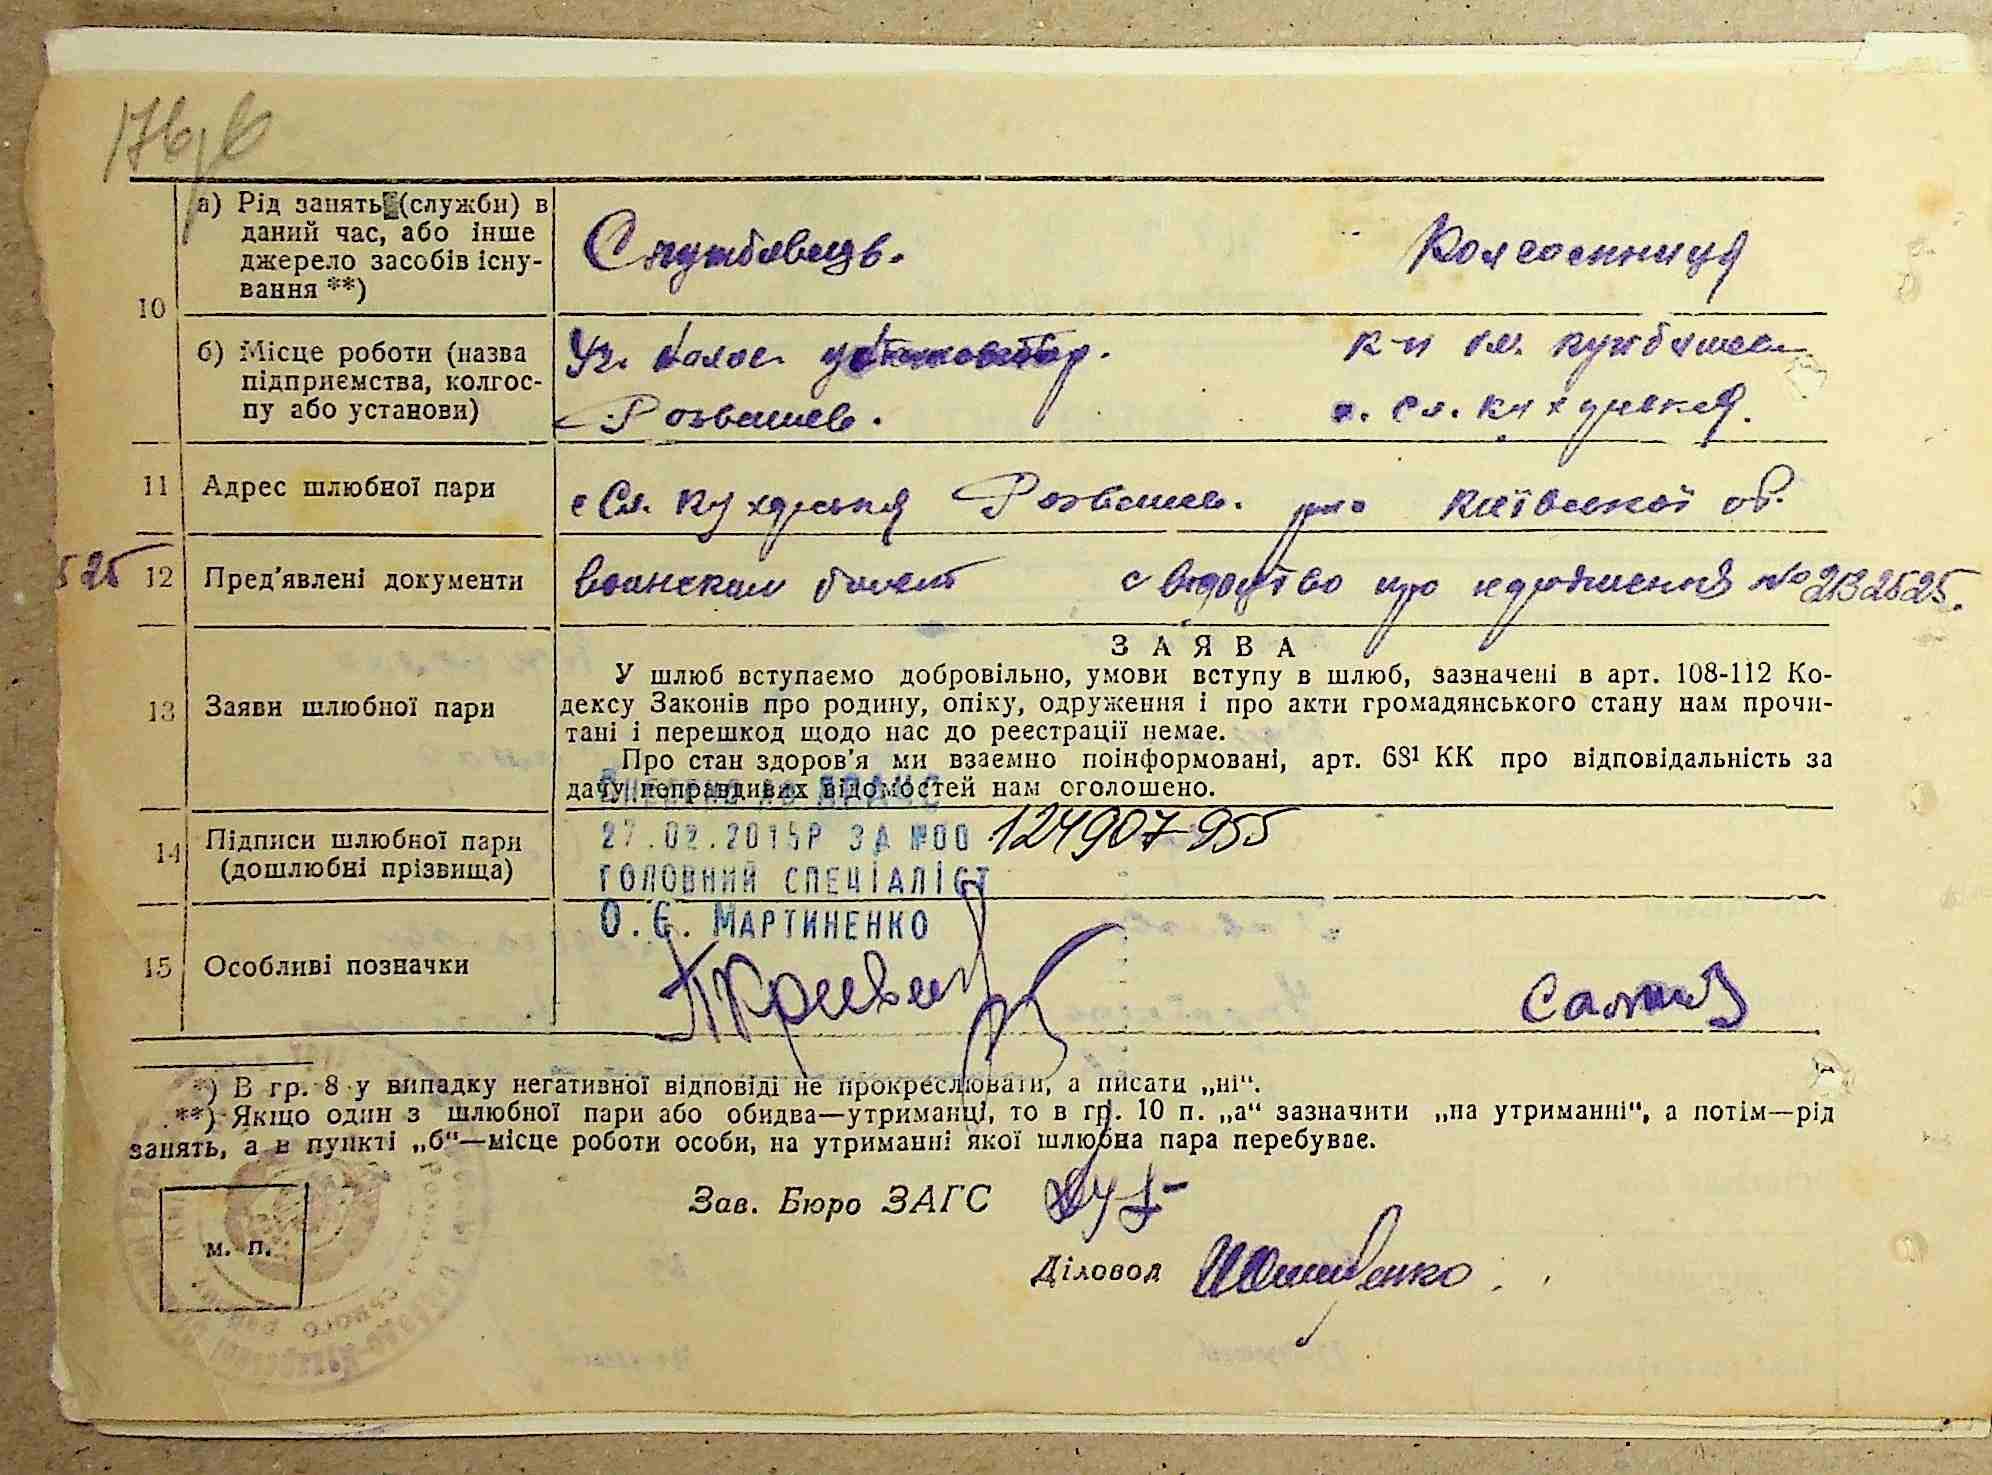 176
а) Рід занять (служби) в
даний час, або інше
джерело засобів існу-
вання **)
Службовець.
Колгоспниця
10
б) Місце роботи (назва
підприємства, колгос-
пу або установи)
Розважев.
к-п ім.
с. Сл. Кухарська.
11 Адрес шлюбної пари
с Сл. Кухарська Розважев. р-на Київської об.
525 12 Пред'явлені документи
воинский билет свідоцтво про народження № 2132525.
13 Заяви шлюбної пари
ЗАЯВА
У шлюб вступаємо добровільно, умови вступу в шлюб, зазначені в арт. 108-112 Ко-
дексу Законів про родину, опіку, одруження і про акти громадянського стану нам прочи-
тані і перешкод щодо нас до реєстрації немає.
Про стан здоров'я ми взаємно поінформовані, арт. 68¹ КК про відповідальність за
дачу неправдивих відомостей нам оголошено.
Внесено до ДРАЦС
14 Підписи шлюбної пари
(дошлюбні прізвища)
27.02.2015Р ЗА №00 124907955
ГОЛОВНИЙ СПЕЦІАЛІСТ
О. Є. МАРТИНЕНКО
15 Особливі позначки
*) В гр. 8 у випадку негативної відповіді не прокреслювати, а писати „ні“.
**) Якщо один з шлюбної пари або обидва—утриманці, то в гр. 10 п. „а“ зазначити „на утриманні“, а потім—рід
занять, а в пункті „б“—місце роботи особи, на утриманні якої шлюбна пара перебуває.
Зав. Бюро ЗАГС
м. п.
Діловод